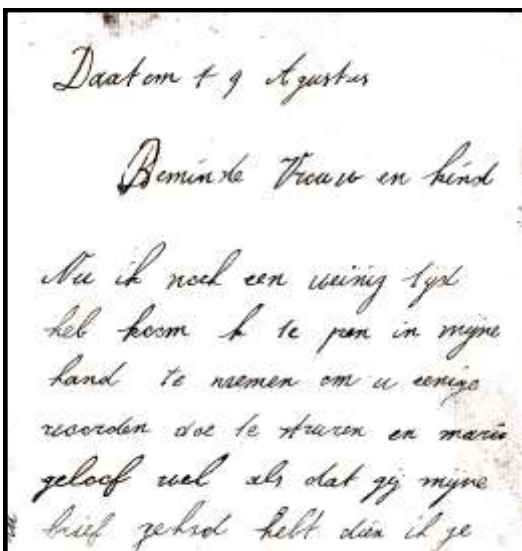 Daatom 19 Agustus
Beminde Vrouw en kind
Nu ik noch een weinig tyd
heb koom k te pen in myne
hand te nemen om u eenige
woorden doe te sturen en
geloof wel als dat gy myne
brief gehad hebt dien ik je